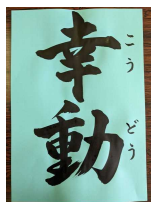 幸動
こうどう